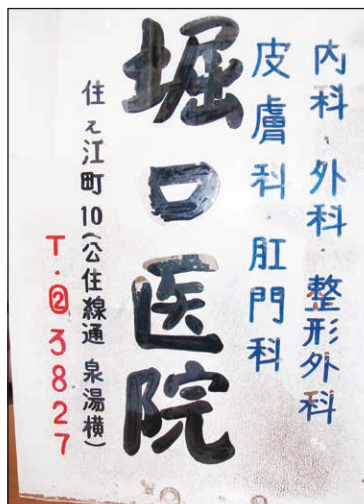 内科・外科・整形外科
皮膚科・肛門科
堀口医院
住之江町10(公住線通 泉湯横)
T.②3827